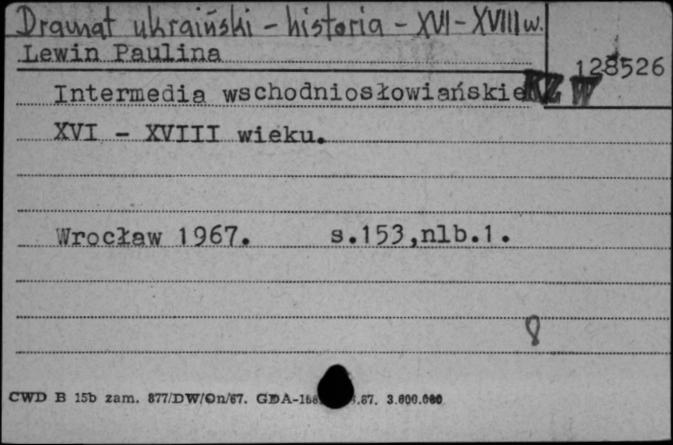 Dramat ukraiński - historia - XVI - XVIII w.
Lewin Paulina
128526
Intermedia wschodniosłowiańskie
KZ W
XVI - XVIII wieku.
Wrocław 1967. s.153,nlb.1.
8
CWD B 15b zam. 877/DW/On/67. GDA-168 .67. 3.600.000